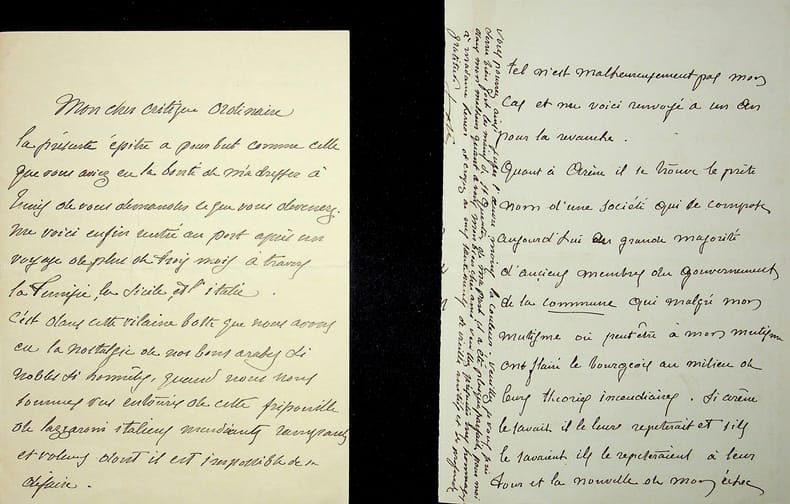 Mon cher critique ordinaire
la présente épitre a pour but comme celle
que vous aviez eu la bonté de m'adresser à
Tunis de vous demander ce que vous devenez.
me voici enfin rentré au port après un
voyage de plus de trois mois à travers
la Tunisie, la Sicile et l'italie.
C'est dans cette vilaine botte que nous avons
eu la nostalgie de nos bons arabes si
nobles si honnêtes, quand nous nous
sommes vus entourés de cette fripouille
de lazzaroni italiens mendiants rampants
et voleurs dont il est impossible de se
défaire.
tel n'est malheureusement pas mon
cas et me voici renvoyé à un an
pour la revanche.
Quant à Arène il se trouve le prête
nom d'une société qui se compose
aujourd'hui en grande majorité
d'anciens membres du gouvernement
de la commune qui malgré mon
mutisme ou peut être à mon mutisme
ont flairé le bourgeois au milieu de
leurs théories incendiaires. Si arène
le savait il le leur répéterait et s'ils
le savaient ils le répéteraient à leur
tour et la nouvelle de mon échec
Vous pourrez ainsi juger l'œuvre moins la couleur. veuillez je vous prie